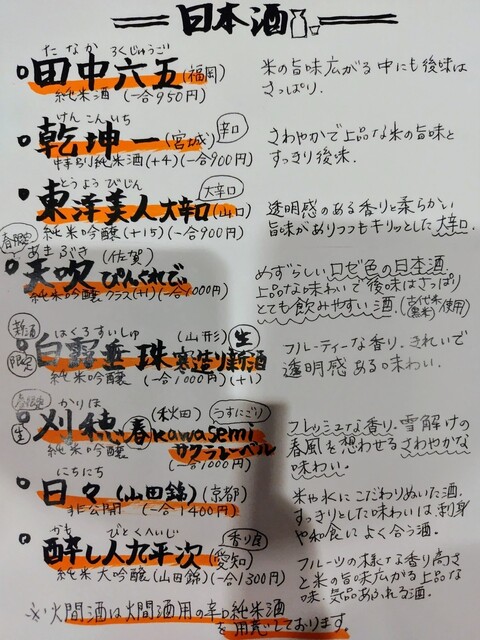 日本酒
たなか ろくじゅうご
田中六五 (福岡)
純米酒 (一合950円)
米の旨味広がる中にも後味は
さっぱり.
けんこんいち
乾坤一 (宮城) 辛口
特別純米酒(+4)(一合900円)
さわやかで上品な米の旨味と
すっきり後味.
とうようびじん
東洋美人 大辛口 (山口) 大辛口
純米吟醸(+15)(一合900円)
透明感のある香りと柔らかい
旨味がありつつもキリッとした大辛口.
春限定
あまぶき (佐賀)
天吹 ぴんくれでぃ
純米吟醸 クラス(+1)(一合1000円)
めずらしいロゼ色の日本酒.
上品な味わいで後味はさっぱり
とても飲みやすい酒.(古代米使用)
新酒
限定
はくろすいしゅ (山形) 生
白露垂珠 寒造り新酒
純米吟醸 (一合1000円)(+1)
フルーティーな香り. きれいで
透明感ある味わい.
生
かりほ (秋田) うすにごり
刈穂 春kawasemi
純米吟醸 サクラレーベル
(一合1000円)
フレッシュな香り. 雪解けの
春風を想わせるさわやかな
味わい.
にちにち
日々 (山田錦) (京都)
非公開 (一合1400円)
米や水にこだわりぬいた酒.
すっきりとした味わいは刺身
や和食によく合う酒.
かも びとくへいじ 香り良
醸し人九平次 (愛知)
純米大吟醸 (山田錦)(一合1300円)
フルーツの様な香り高さ
と米の旨味広がる上品な
味. 気品あふれる酒.
※火間酒は火間酒用の辛口純米酒
を用意しております.